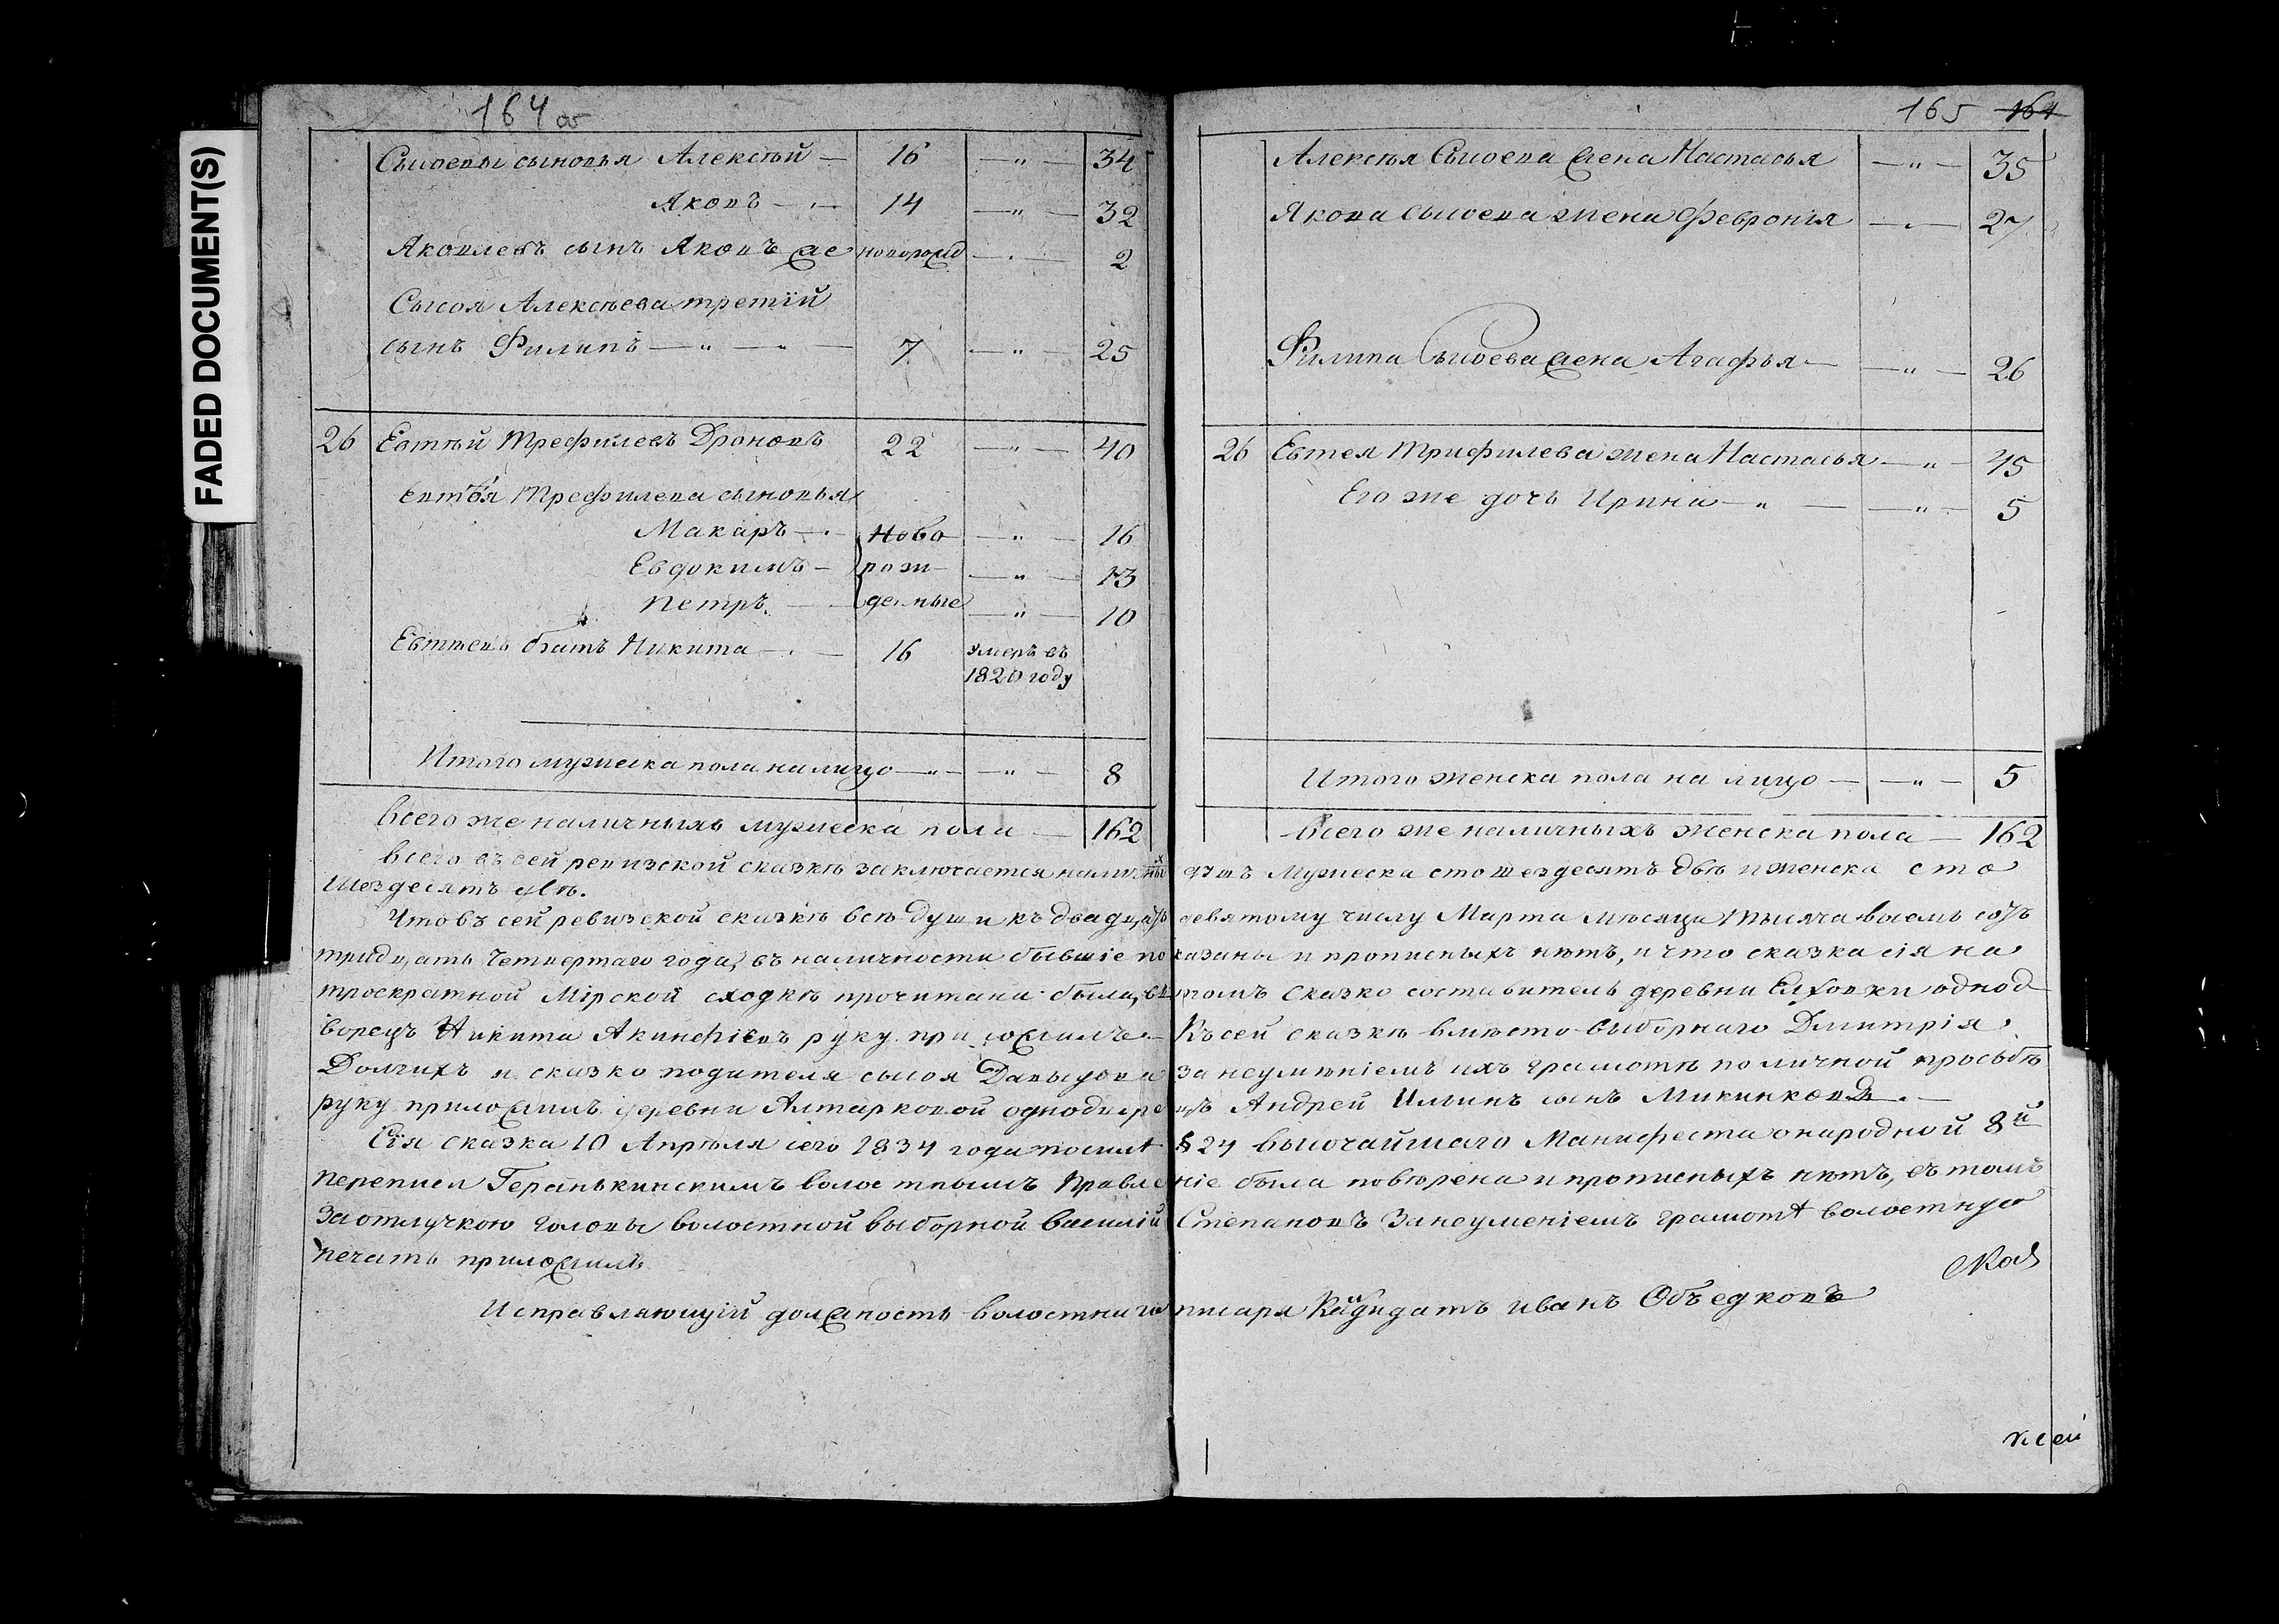 FADED DOCUMENT(S)
164 об
Сысоевы сыновья Алексѣй — 16 — „ — 34
Яковъ — „ — 14 — „ — 32
Яковлевъ сынъ Яковъ же новорожд — „ — 2
Сысоя Алексѣева третій
сынъ Филипъ — „ — „ — 7 — „ — 25
26 Евтѣй Трефилевъ Дроновъ 22 — „ — 40
Евтѣя Трефилева сыновья
Макаръ — „ — Ново — „ — 16
Евдокимъ — рож — „ — 13
Петръ — денные — „ — 10
Евтѣевъ братъ Никита — „ — 16 умеръ въ
1820 году
Итого мужеска пола налицо — „ — „ — 8
Всего же наличныхъ мужеска пола — 162
165 164
Алексѣя Сысоева жена Настасья — „ — 35
Якова Сысоева жена Февронія — „ — 27
Филипа Сысоева жена Агафья — „ — 26
26 Евтея Трифилева жена Настасья — „ — 45
Его же дочь Ирина — „ — „ — 5
Итого женска пола на лицо — „ — 5
Всего же наличныхъ женска пола — 162
Всего въ сей ревизской сказкѣ заключается наличныхъ душъ мужеска сто шездесятъ двѣ и женска сто
шездесятъ двѣ.
Что въ сей ревизской сказкѣ всѣ души къ двадцать девятому числу Марта мѣсяца тысяча восемь сотъ
тридцать четвертаго года, въ наличности бывшіе показаны и прописныхъ нѣтъ, и что сказка сія на
троекратной Мірской сходкѣ прочитана была, въ томъ Сказко составитель деревни Елховки однод
ворецъ Никита Акинфіевъ руку приложилъ — Къ сей сказкѣ вмѣсто выборнаго Дмитрія
Долгихъ и сказко подателя сысоя Давыдова за неумѣніемъ ихъ грамотѣ по личной прозьбѣ
руку приложилъ деревни Алтарковой однодворецъ Андрей Ильинъ сынъ Микинковъ. —
Сія сказка 10 Апрѣля сего 1834 года по силѣ § 24 высочайшаго Манифеста о народной 8й
переписи Геранькинскимъ волостнымъ Правленіе была повѣрена и прописныхъ нѣтъ, въ томъ
За отлучкою головы волостной выборной василій Степановъ за неуменіемъ грамотѣ волостную
печать приложилъ
Исправляющій должность волостнаго писаря Кандидатъ иванъ Объедковъ
къ сей